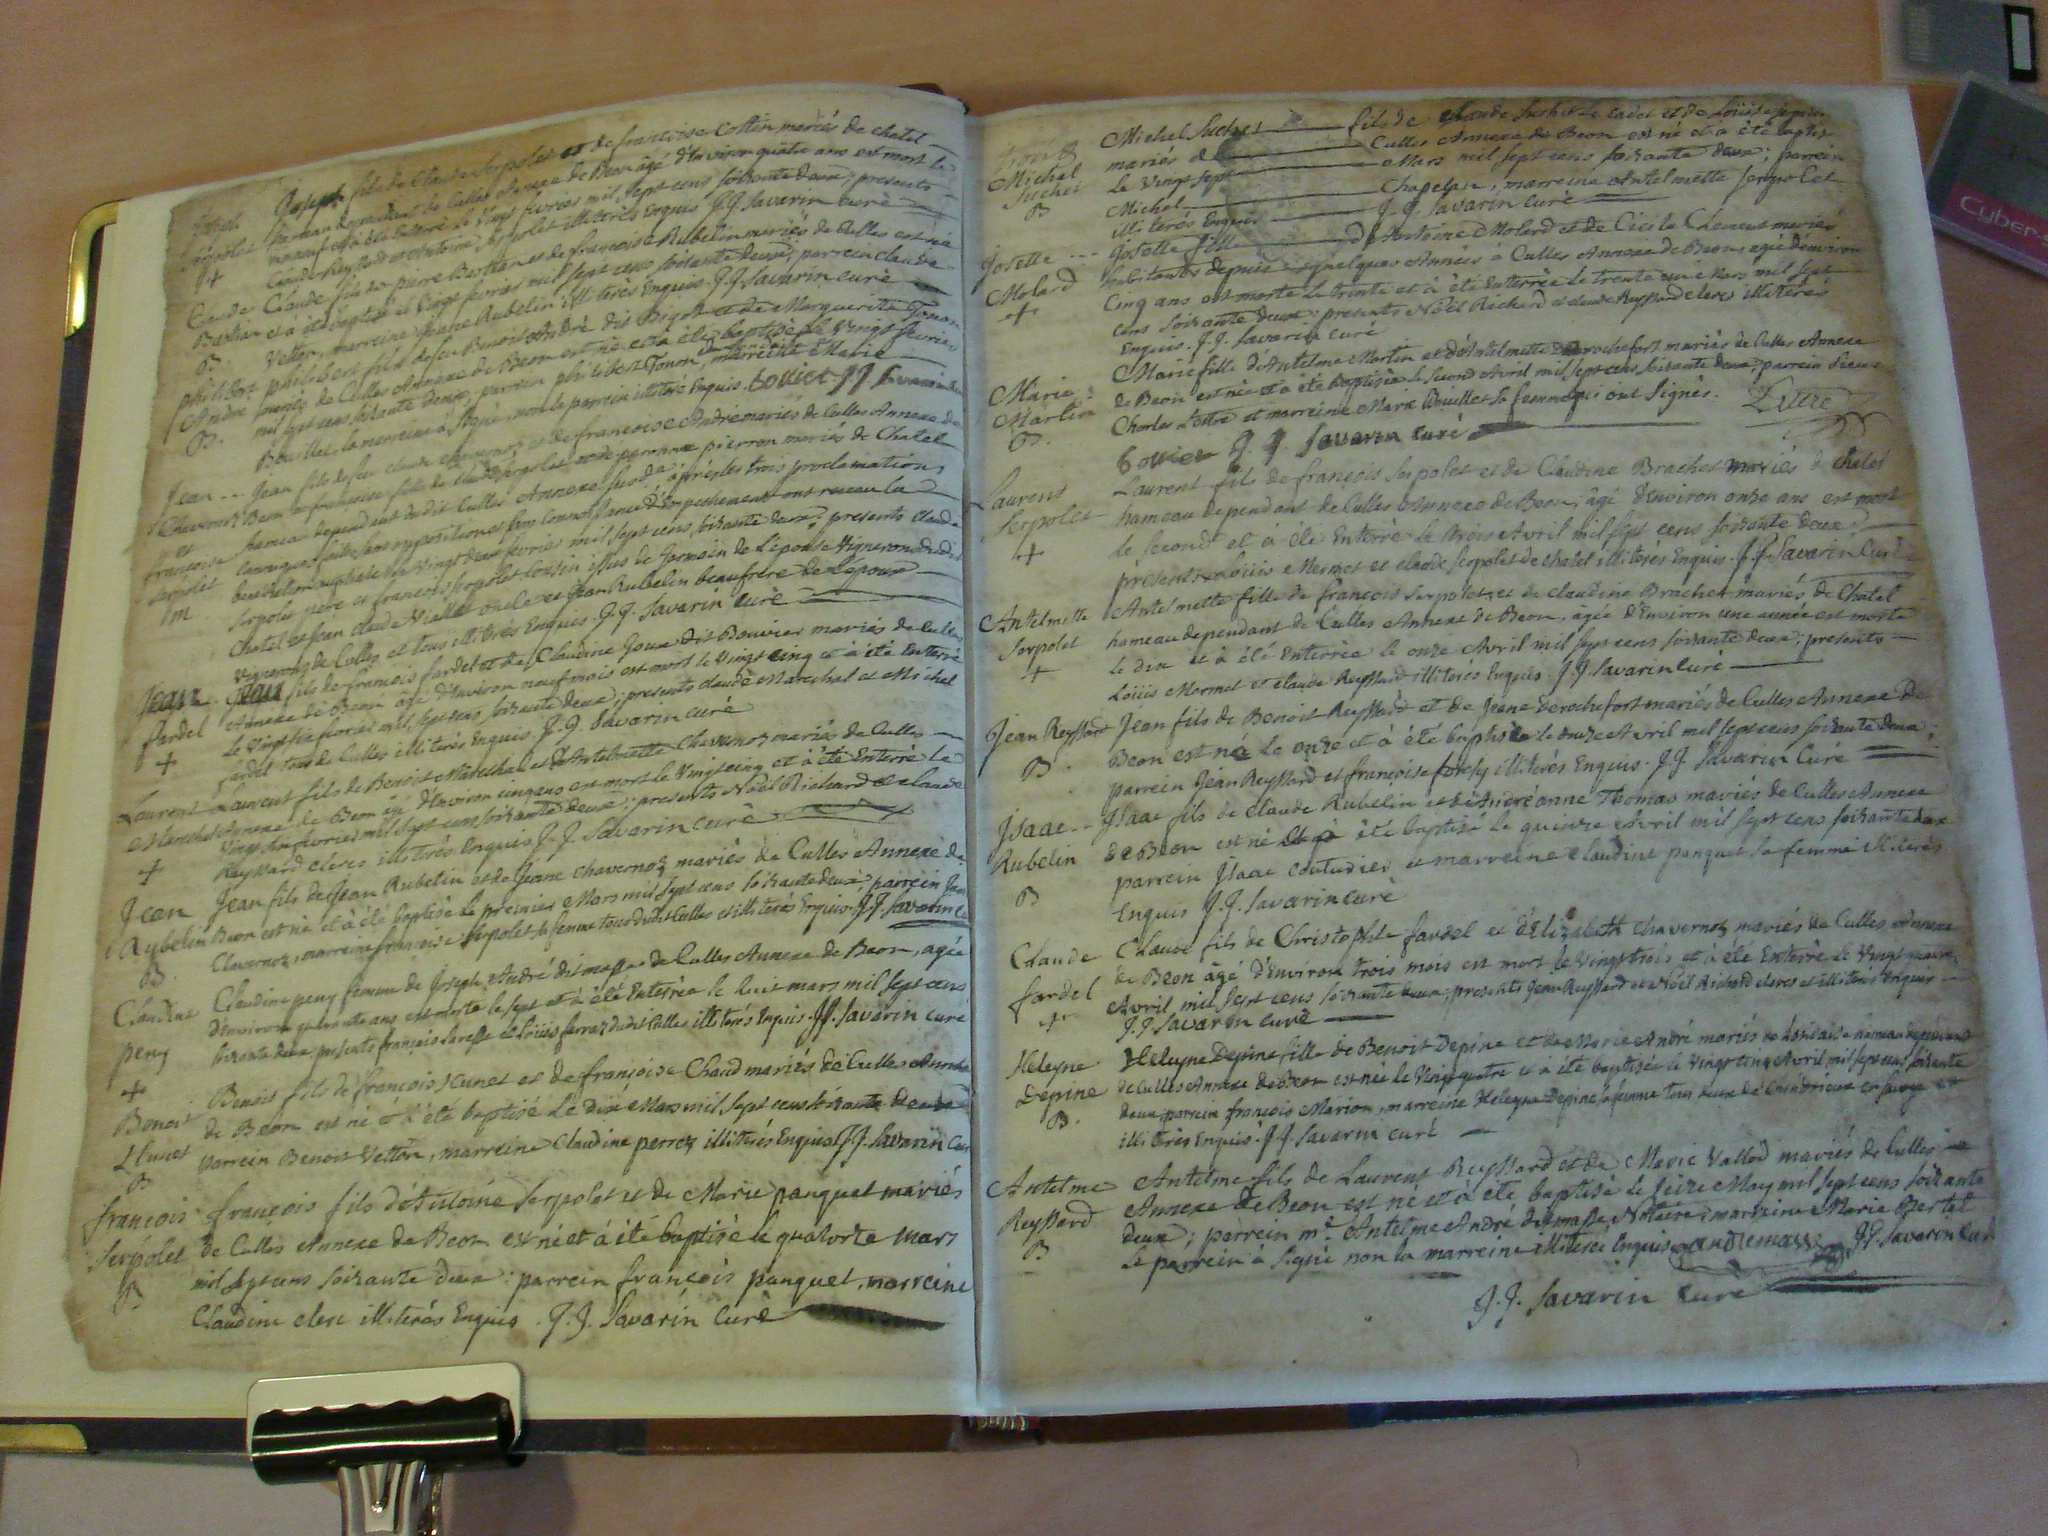 Joseph
Serpolet
+
Joseph fils de Claude Serpolet et de françoise Collin mariés de chatel
hameau dependant de Culles Annexe de Beon âgé d'Environ quatre ans est mort le
et à été Enterré le Vingt fevrier mil sept cens soixante deux; presents
Claude Reyssard et Antoine Serpolet illiterés Enquis J.J. Savarin curé
Claude
Bastian
B.
Claude fils de pierre Bastian et de francoise Rubelin mariés de Culles est né
et à été baptisé le Vingt fevrier mil sept cens soixante deux; parrein claude
Vettor, marreine jeane Rubelin illiterés Enquis. J.J. Savarin curé
philibert
André
B.
philibert fils de feu Benoit André dit Bigot et de Marguerite Tonon
mariés de Culles Annexe de Beon est né et à été baptisé le Vingt fevrier
mil sept cens soixante deux, parrein philibert Tonon, marreine Marie
Bouillet la marreine à signé, non le parrein illiteré Enquis. bouiet J J Savarin
Jean
Chavernoz
et
françoise
Serpolet
m
Jean fils de feu claude chavernoz et de francoise André mariés de Culles Annexe de
Beon et françoise fille de claude Serpolet et de pernone pierron mariés de Chatel
hameau dependant dudit Culles Annexe susd. après les trois proclamations
canoniques faites sans opposition et sans connoissance d'Empechement ont receu la
benediction nuptiale le Vingt deux fevrier mil sept cens soixante deux, presents claude
Serpolet pere et francois Serpolet Cousin issus de Germain de L'epouse Vignerons dudit
Chatel et Jean claude Viallet oncle et Jean Rubelin beaufrere de L'epoux
Vignerons de Culles et tous illiterés Enquis. J.J. Savarin Curé
Jean
fardel
+
Jean fils de francois fardel et de Claudine Goux dit Bouvier mariés de Culles
Annexe de Beon âgé d'Environ neuf mois est mort le Vingt cinq et à été Enterré
le Vingt six fevrier mil sept cens soixante deux; presents claude Marechal et Michel
fardel tous de Culles illiterés Enquis. J.J. Savarin curé
Laurent
Marechal
+
Laurent fils de Benoit Marechal et d'Antelmette Chavernoz mariés de Culles
Annexe de Beon âgé d'Environ cinq ans est mort le Vingt cinq et à été Enterré le
Vingt six fevrier mil sept cens soixante deux; presents Noël Richard et claude
Reyssard clercs illiterés Enquis J.J. Savarin curé
Jean
Rubelin
B.
Jean fils de Jean Rubelin et de Jeane Chavernoz mariés de Culles Annexe de
Beon est né et à été baptisé le premier Mars mil sept cens soixante deux, parrein Jean
Chavernoz, marreine francoise Serpolet sa femme tous dudit Culles et illiterés Enquis. J.J. Savarin
Claudine
peny
+
Claudine peny femme de Joseph André dit masse de Culles Annexe de Beon, agée
d'Environ quarante ans est morte le sept et à été Enterrée le huit mars mil sept cens
soixante deux presents françois et Loüis dudit Culles illiterés Enquis. J.J. Savarin curé
Benoit
Hunet
B
Benoit fils de françois Hunet et de françoise Chaud mariés de Culles Annexe
de Beon est né et à été baptisé Le Dix Mars mil sept cens soixante deux
parrein Benoit Vettor, marreine Claudine perroz illiterés Enquis J.J. Savarin Curé
francois
Serpolet
B.
françois fils d'Antoine Serpolet et de Marie panquet mariés
de Culles Annexe de Beon est né et à été baptisé le quatorze mars
mil sept cens soixante deux: parrein françois panquet, marreine
Claudine clerc illiterés Enquis. J.J. Savarin Curé
Michel
Suchet
B
Michel Suchet fils de claude Suchet Le Cadet et de Loüise
mariés d Culles Annexe de Beon est né et à été baptisé
le Vingt sept Mars mil sept cens soixante deux; parrein
Michel Chapelan, marreine Antelmette Serpolet
illiterés Enquis J.J. Savarin curé
Josette
Molard
+
Josette fille d'Antoine Molard et de Cécile Clement mariés
habitants depuis quelques Années à Culles Annexe de Beon, agée d'environ
Cinq ans est morte Le trente et à été Enterrée le trente un Mars mil sept
cens soixante deux; presents Noël Richard et claude Reyssard clercs illiterés
Enquis. J.J. Savarin curé
Marie
Martin
B.
Marie fille d'Antelme Martin et d'Antelmette Derochefort mariés de Culles Annexe
de Beon est née et à été baptisée le second Avril mil sept cens soixante deux; parrein sieur
Charles Littre et marreine Marie Bouillet sa femme qui ont signés. Littre
bouiet J. J. Savarin Curé
Laurent
Serpolet
+
Laurent fils de françois Serpolet et de Claudine Brachet mariés de chatel
hameau dependant de Culles Annexe de Beon, âgé d'Environ onze ans est mort
le second et à été Enterré le trois Avril mil sept cens soixante deux;
presents Loüis Mermet et claude Serpolet de chatel illiterés Enquis. J.J. Savarin Curé
Antelmette
Serpolet
+
Antelmette fille de françois Serpolet, et de claudine Brachet mariés de Chatel
hameau dependant de Culles Annexe de Beon, agée d'Environ une année est morte
le dix et à été Enterrée le onze Avril mil sept cens soixante deux; presents
Loüis Mermet et claude Reyssard illiterés Enquis. J.J. Savarin Curé
Jean Reyssard
B.
Jean fils de Benoit Reyssard et de Jeane Derochefort mariés de Culles Annexe De
Beon est né Le onze et à été baptisé le douze Avril mil sept cens soixante deux;
parrein Jean Reyssard et françoise illiterés Enquis. J.J. Savarin Curé
Isaac
Rubelin
B
Isaac fils de Claude Rubelin et d'Andréanne Thomas mariés de Culles Annexe
de Beon est né et à été baptisé le quinze Avril mil sept cens soixante deux
parrein Isaac Couturier et marreine Claudine panquet sa femme illiterés
Enquis J.J. Savarin Curé
Claude
fardel
+
Claude fils de Christophle fardel et d'Elizabeth Chavernoz mariés de Culles Annexe
de Beon âgé d'Environ trois mois est mort le Vingt trois et à été Enterré le Vingt quatre
Avril mil sept cens soixante deux; presents Jean Reyssard et Noël Richard clercs et illiterés Enquis
J.J Savarin Curé
Heleyne
Depine
B.
Heleyne Depine fille de Benoit Depine et de Marie André mariés hameau dependant
de Culles Annexe de Beon est née le Vingt quatre et à été baptisée le Vingt cinq Avril mil sept cens soixante
deux, parrein françois Marion, marreine Heleyne Depine sa femme tous deux de Chindrieux en savoye et
illiterés Enquis. J.J Savarin Curé
Antelme
Reyssard
B
Antelme fils de Laurent Reyssard et de Marie Vallod mariés de Culles
Annexe de Beon est né et à été baptisé le seize May mil sept cens soixante
deux; parrein m.e Antelme André dit masse Notaire, marreine Marie Bertet
le parrein à signé non la marreine illiterée Enquise andremasse J.J. Savarin Curé
J.J. Savarin Curé
Cyber-